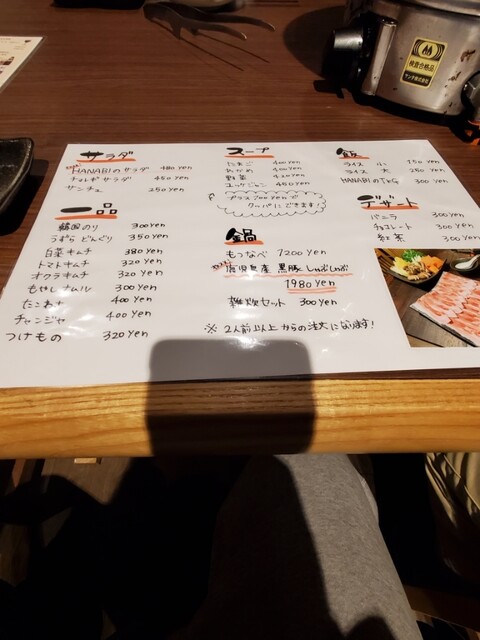 サラダ
HANABIのサラダ 480 yen
チョレギサラダ 450 yen
サンチュ 250 yen
一品
韓国のり 300 yen
うずらどんぐり 350 yen
白菜キムチ 380 yen
トマトキムチ 320 yen
オクラキムチ 320 yen
もやしナムル 300 yen
たこわさ 400 yen
チャンジャ 400 yen
つけもの 320 yen
スープ
たまご 400 yen
わかめ 400 yen
野菜 420 yen
ユッケジャン 450 yen
プラス 200 yen で
クッパにできます!
鍋
もつなべ 1200 yen
鹿児島産 黒豚しゃぶしゃぶ
1980 yen
雑炊セット 300 yen
※ 2人前以上からの注文になります!
飯
ライス 小 150 yen
ライス 大 250 yen
HANABIのTKG 300 yen
デザート
バニラ 300 yen
チョコレート 300 yen
紅茶 300 yen
検査合格品